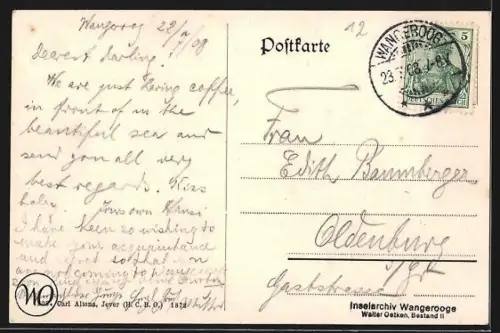 Wangeroog 22/7/08
Dearest darling!
We are just having coffee,
in front of us the
beautiful sea and
send you all very
best regards. Kiss
Yours own Hansi
I have been so wishing to
make your acquaintance
and regret so that you
are not coming to Wangeroog
12
Postkarte
WANGEROOG
23.7.08. 7-8V
5
Frau
Edith Baumberger
Oldenburg
i/Gr.
Gaststrasse
WO
Carl Altona, Jever (H. C. B. O.) 1878
Inselarchiv Wangerooge
Walter Oetken, Bestand II